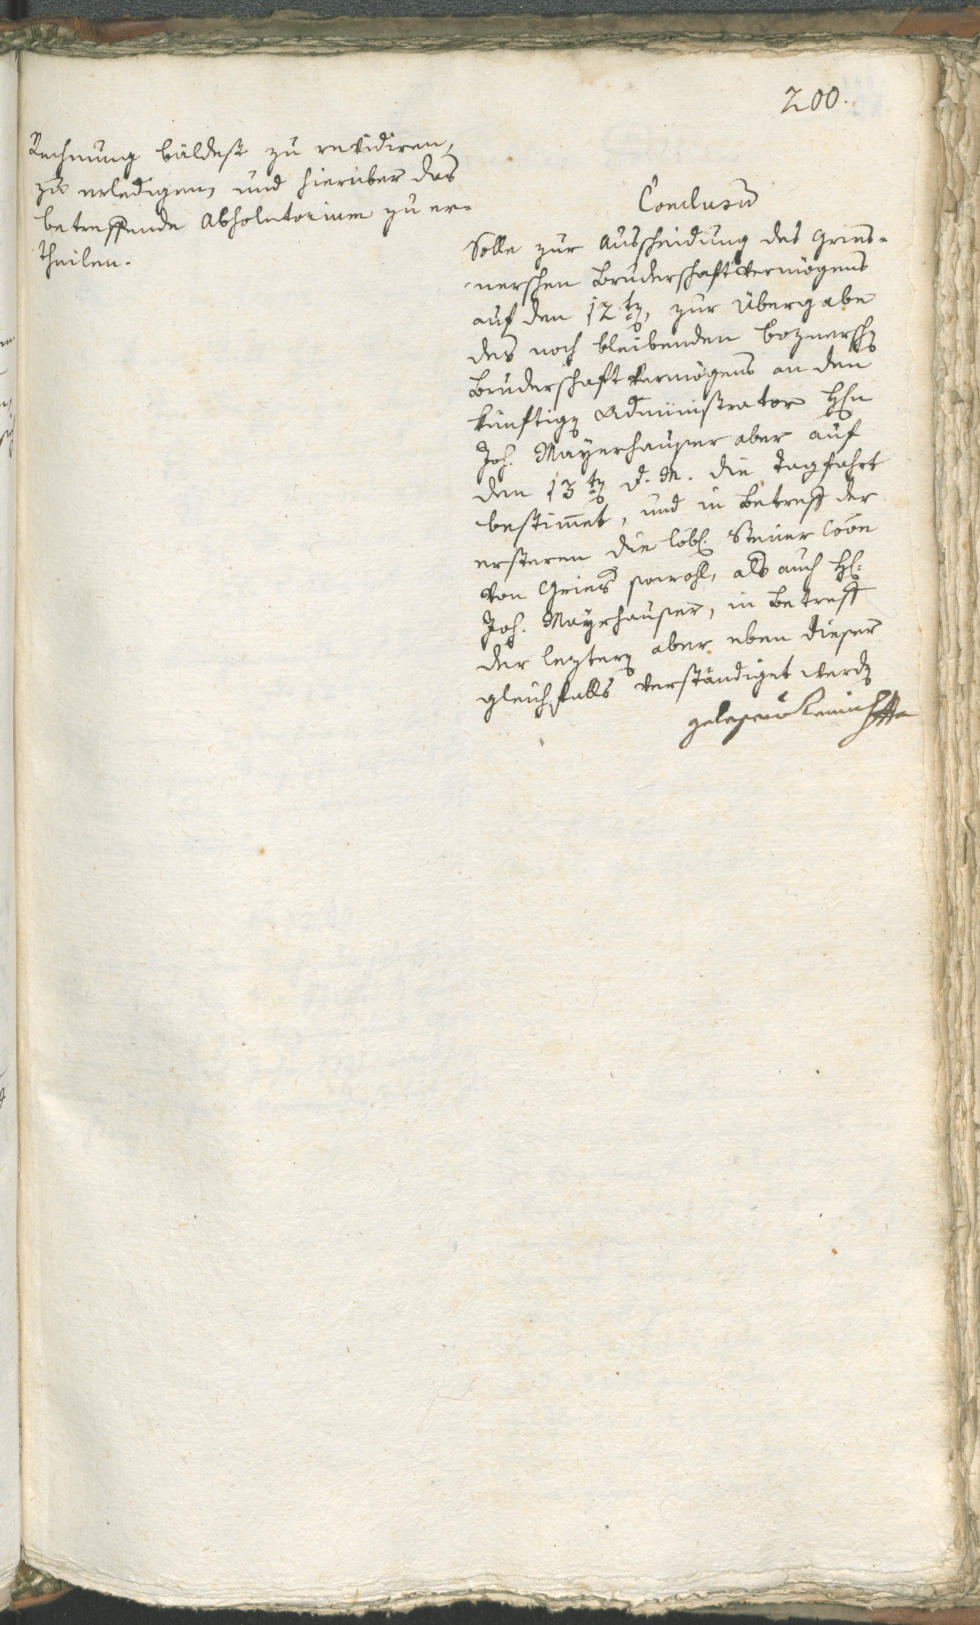 200.
Rechnung bäldest zu revidiren,
zu erledigen, und hierüber das
betreffende Absolutorium zu er-
theilen.
Conclusum
Solle zur Ausscheidung des Gries-
nerschen Bruderschaft Vermögens
auf den 12ten, zur Übergabe
des noch bleibenden boznersch
Bruderschaft Vermögens an den
künftigen Administrator Hhn
Joh. Mayrhauser aber auf
den 13ten d. M. die Tagfahrt
bestimmet, und in Betreff der
ersteren die löbl. Steuer Coon
von Gries sowohl, als auch H:
Joh. Mayrhauser, in Betreff
der leztern aber eben dieser
gleichfalls verständiget werden
gelesen